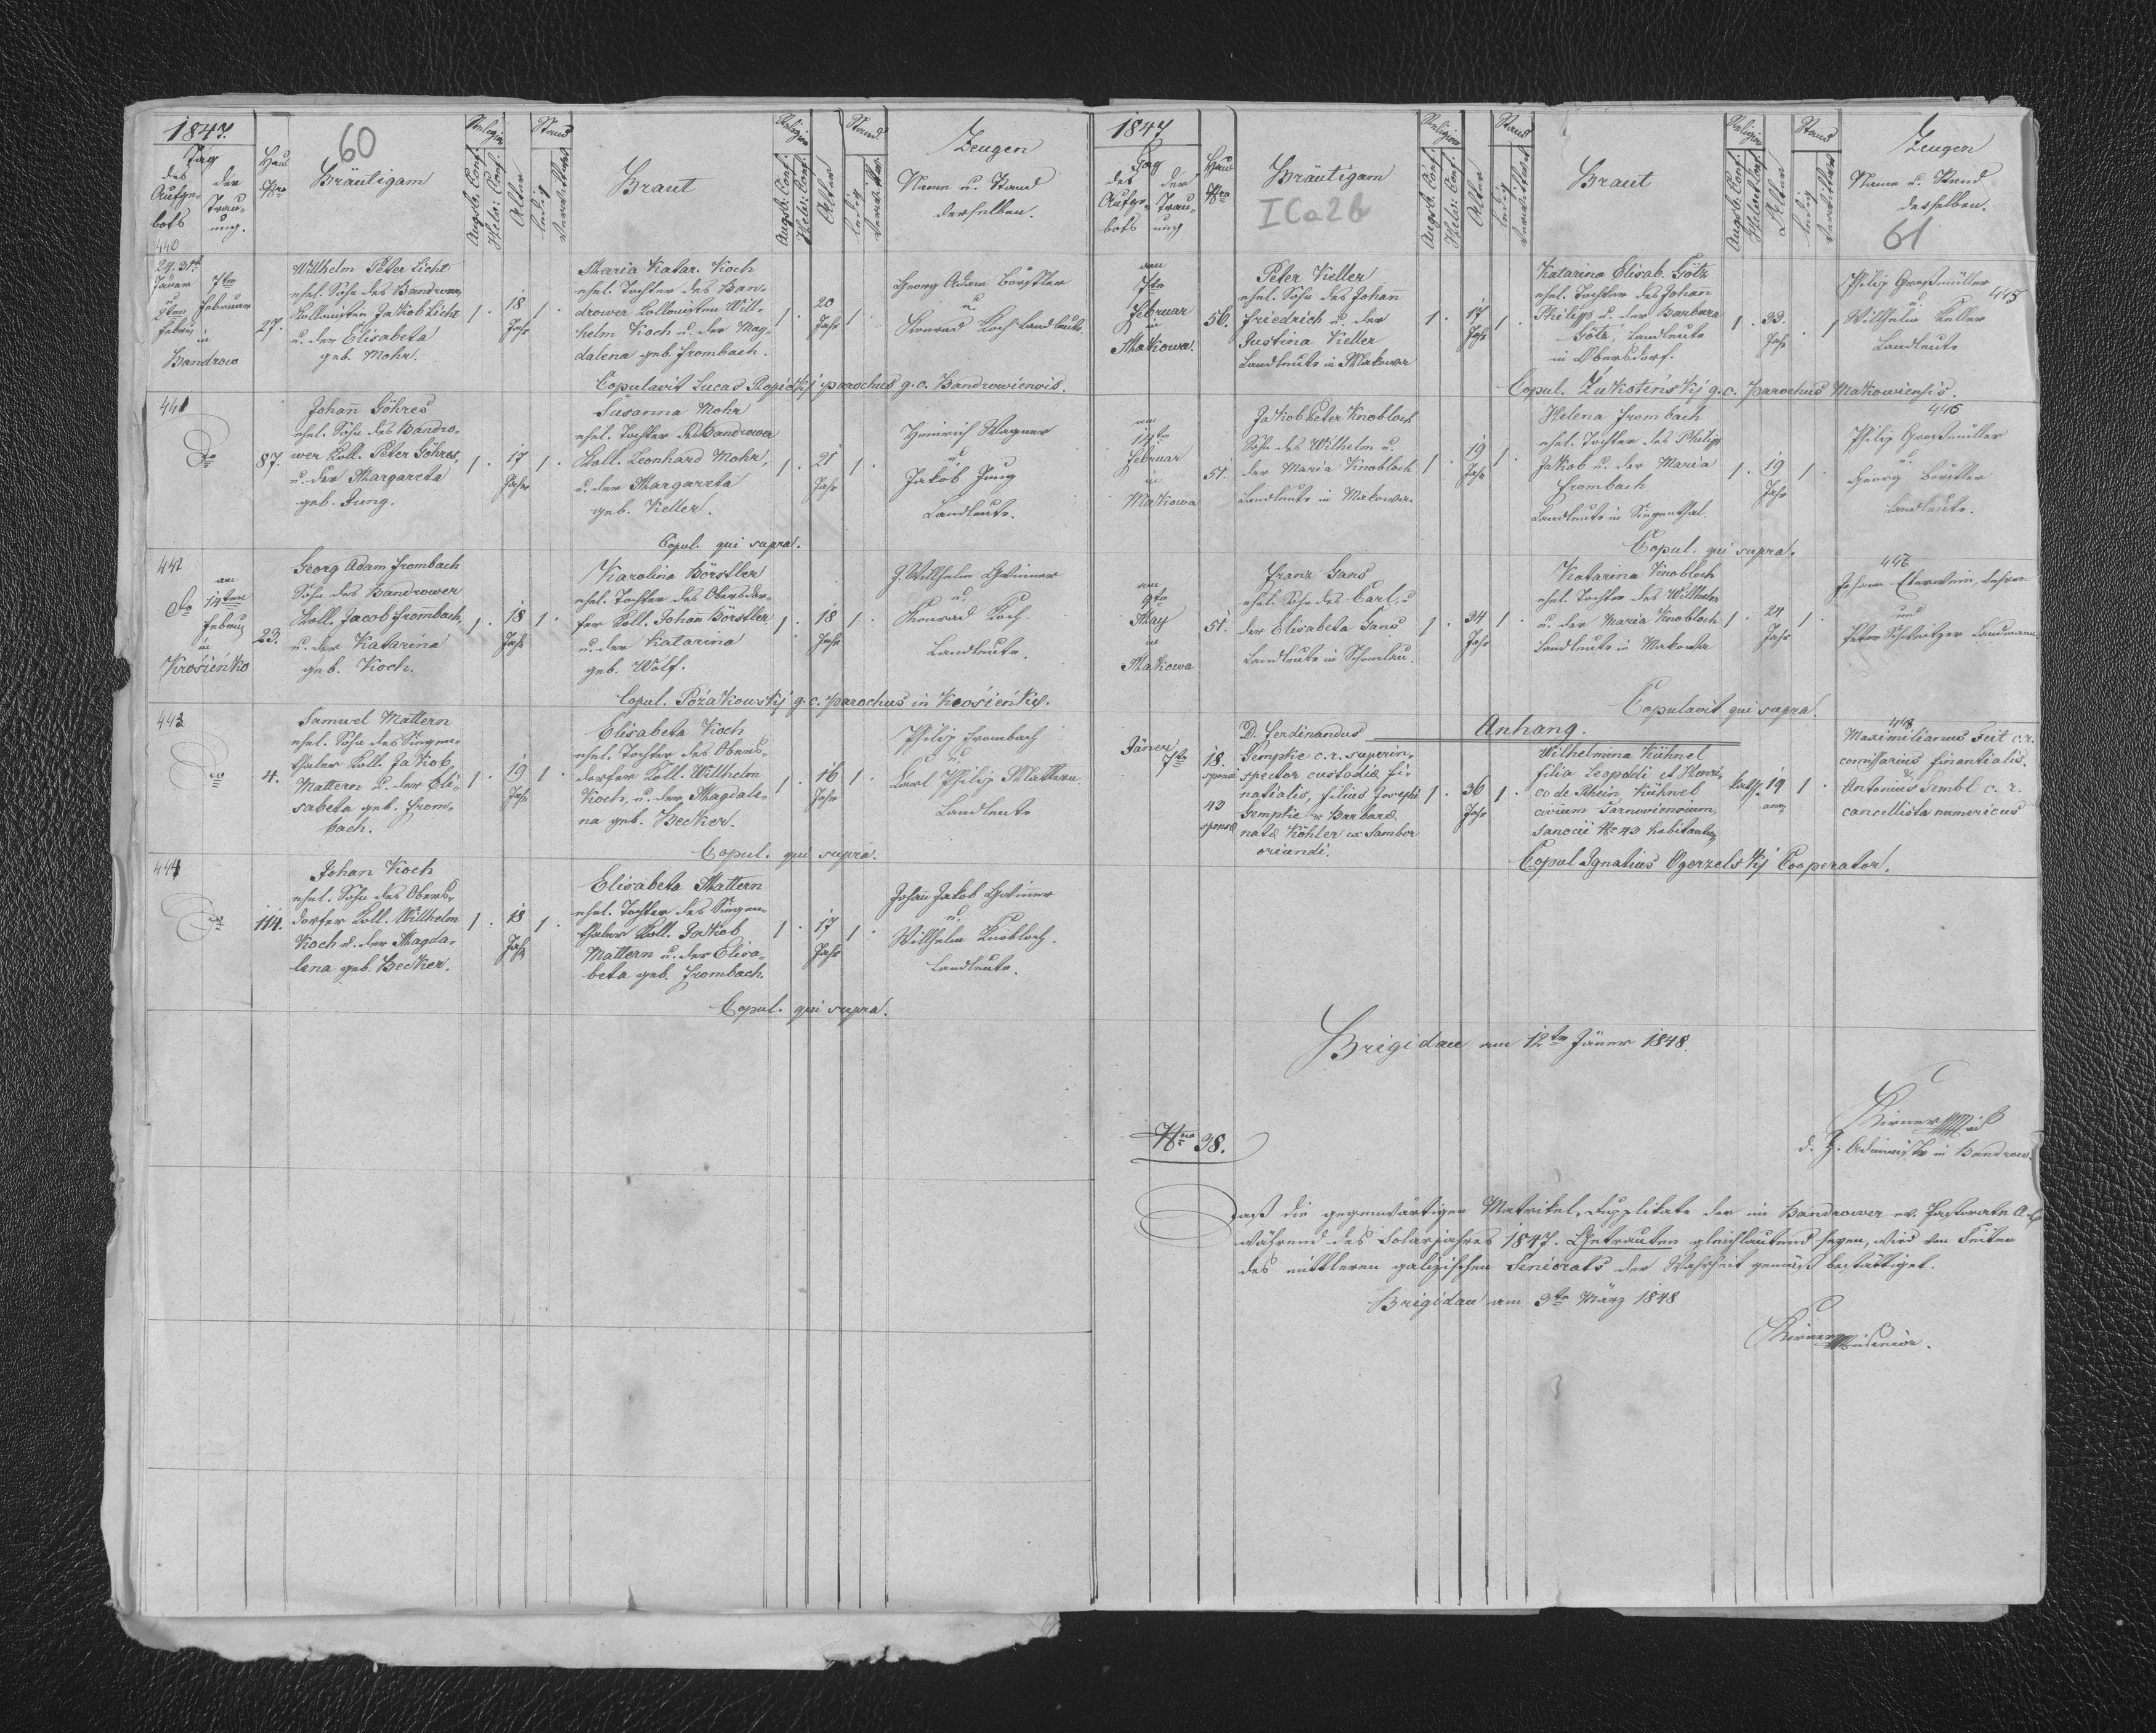 1847.
60
Tag
des Aufge- bots
der Trau- ung.
Haus Nro
Bräutigam
Religion
Augsb. Conf.
Helv. Conf.
Alter
Stand
ledig
Verwittwet
Braut
Religion
Augsb. Conf.
Helv. Conf.
Alter
Stand
ledig
Verwittwet
Zeugen
Name u. Stand
derselben.
440
24. 31t
Jäner
u
2ten
Febru
7ten
Februar
in
Bandrow
27.
Willhelm Peter Licht
ehel. Sohn des Bandrower
Kollonisten Jakob Licht
u. der Elisabeta
geb. Mohr.
1.
18
Jahr
1.
Maria Katar. Koch
ehel. Tochter des Ban-
drower Kollonisten Will-
helm Koch u. der Mag-
dalena geb. Frombach.
1.
20
Jahr
1.
Georg Adam Börstler
u
Konrad Koch Landleute.
Copulavit Lucas Ropickÿ parochus g. c. Bandrowiensis.
441
Do
87.
Johann Göhres
ehel. Sohn des Bandro-
wer Koll. Peter Göhres,
u. der Margareta
geb. Jung.
1.
17
Jahr
1.
Susanna Mohr
ehel. Tochter des Bandrower
Koll. Leonhard Mohr,
u. der Margareta
geb. Keller.
1.
21
Jahr
1.
Heinrich Wagner
u
Jakob Jung
Landleute.
Copul. qui supra.
442
Do
am
14ten
Febru
in
Krościenko
23.
Georg Adam Frombach
Sohn des Bandrower
Koll. Jacob Frombach,
u. der Katarina
geb. Koch.
1.
18
Jahr
1.
Karolina Börstler
ehel. Tochter des Obersdor-
fer Koll. Johann Börstler
u. der Katarina
geb. Wolf.
1.
18
Jahr
1.
J. Willhelm Gwinner
u.
Konrad Koch
Landleute.
Copul. Pożakowskÿ g. c. parochus in Krościenkÿ.
443
Do
4.
Samuel Mattern
ehel. Sohn des Siegen-
thaler Koll. Jakob
Mattern u. der Eli-
sabeta geb. From-
bach.
1.
19
Jahr
1.
Elisabeta Koch
ehel. Tochter des Obers-
dorfer Koll. Willhelm
Koch, u. der Magdale-
na geb. Becker.
1.
16
Jahr
1.
Philip Frombach
u.
Karl Philip Mattern
Landleute
Copul. qui supra.
444
Do
114.
Johan Koch
ehel. Sohn des Obers-
dorfer Koll. Willhelm
Koch u. der Magda-
lena geb. Becker.
1.
18
Jahr
1.
Elisabeta Mattern
ehel. Tochter des Siegen-
thaler Koll. Jakob
Mattern u. der Elisa-
beta geb. Frombach.
1.
17
Jahr
1.
Johann Jakob Gwinner
u.
Willhelm Knobloch.
Landleute.
Copul. qui supra.
1847
Tag
des Aufge- bots
der Trau- ung
Haus Nro
Bräutigam
ICa2b
Religion
Augsb. Conf.
Helv. Conf.
Alter
Stand
ledig
Verwittwet
Braut
Religion
Augsb. Conf.
Helv. Conf.
Alter
Stand
ledig
Verwittwet
Zeugen
Name u. Stand
derselben.
61
am
7te
Februar
in
Makowa.
56.
Peter Keller
ehel. Sohn des Johann
Friedrich u. der
Justina Keller
Landleute in Makowa
1.
17
Jahr
1.
Katarina Elisab. Götz
ehel. Tochter des Johann
Philipp u. der Barbara
Götz, Landleute
in Obersdorf.
1.
33.
Jahr
1
Philip Großmüller
445
u.
Willhelm Keller
Landleute
Copul. Żukotińskÿ g. c. parochus Makowiensis.
am
14te
Februar
in
Makowa
51.
Jakob Peter Knobloch
Sohn des Wilhelm u.
der Maria Knobloch
Landleute in Makowa.
1.
19
Jahr
1.
Helena Frombach
ehel. Tochter des Philipp
Jakob u. der Maria
Frombach
Landleute in Siegenthal.
1.
19
Jahr
1.
446
Philip Großmüller
u.
Georg Börstler
Landleute.
Copul. qui supra.
am
9te
May
in
Makowa
51.
Franz Gans
ehel. Sohn des Carl, u
der Elisabeta Gans
Landleute in Schumlau.
1.
34
Jahr
1.
Katarina Knobloch
ehel. Tochter des Willhelm
u. der Maria Knobloch
Landleute in Makowa
1.
24
Jahr
1.
446
Johann Eberwein, Lehrer
und
Peter Schnitzer Landmann.
Copulavit qui supra.
Anhang.
Jäner
7te
18.
sponsi
43
sponsæ
D. Ferdinandus
Gempke c. r. superin-
spector custodiæ fi-
natialis, filius Josephi
Gempke & Barbaræ
natæ Köhler ex Sambor
oriundi.
1.
36
Jahr
1.
Wilhelmina Kühnel
filia Leopoldi et Henri-
ca de Rhein Kühnel
civium Tarnoviensium,
Sanocii No 43 habitantium
kath.
19
ann
1.
448
Maximilianus Feit c. r.
comissarius finantialis.
&
Antonius Sembl c. r.
cancellista numericus
Copul Ignatius Ogorzelskÿ Cooperator.
Brigidau am 12te Jäner 1848.
d. Z. Administr in Bandrow.
Nro 38.
Daß die gegenwärtigen Matrikel-Dupplikate der im Bandrower ev. Pastorate A. C.
während des Solarjahres 1847. Getrauten gleichlautend seyen, wird von Seiten
des mittleren galizischen Seniorats der Wahrheit gemäß bestättiget.
Brigidau am 3te März 1848
Senior.